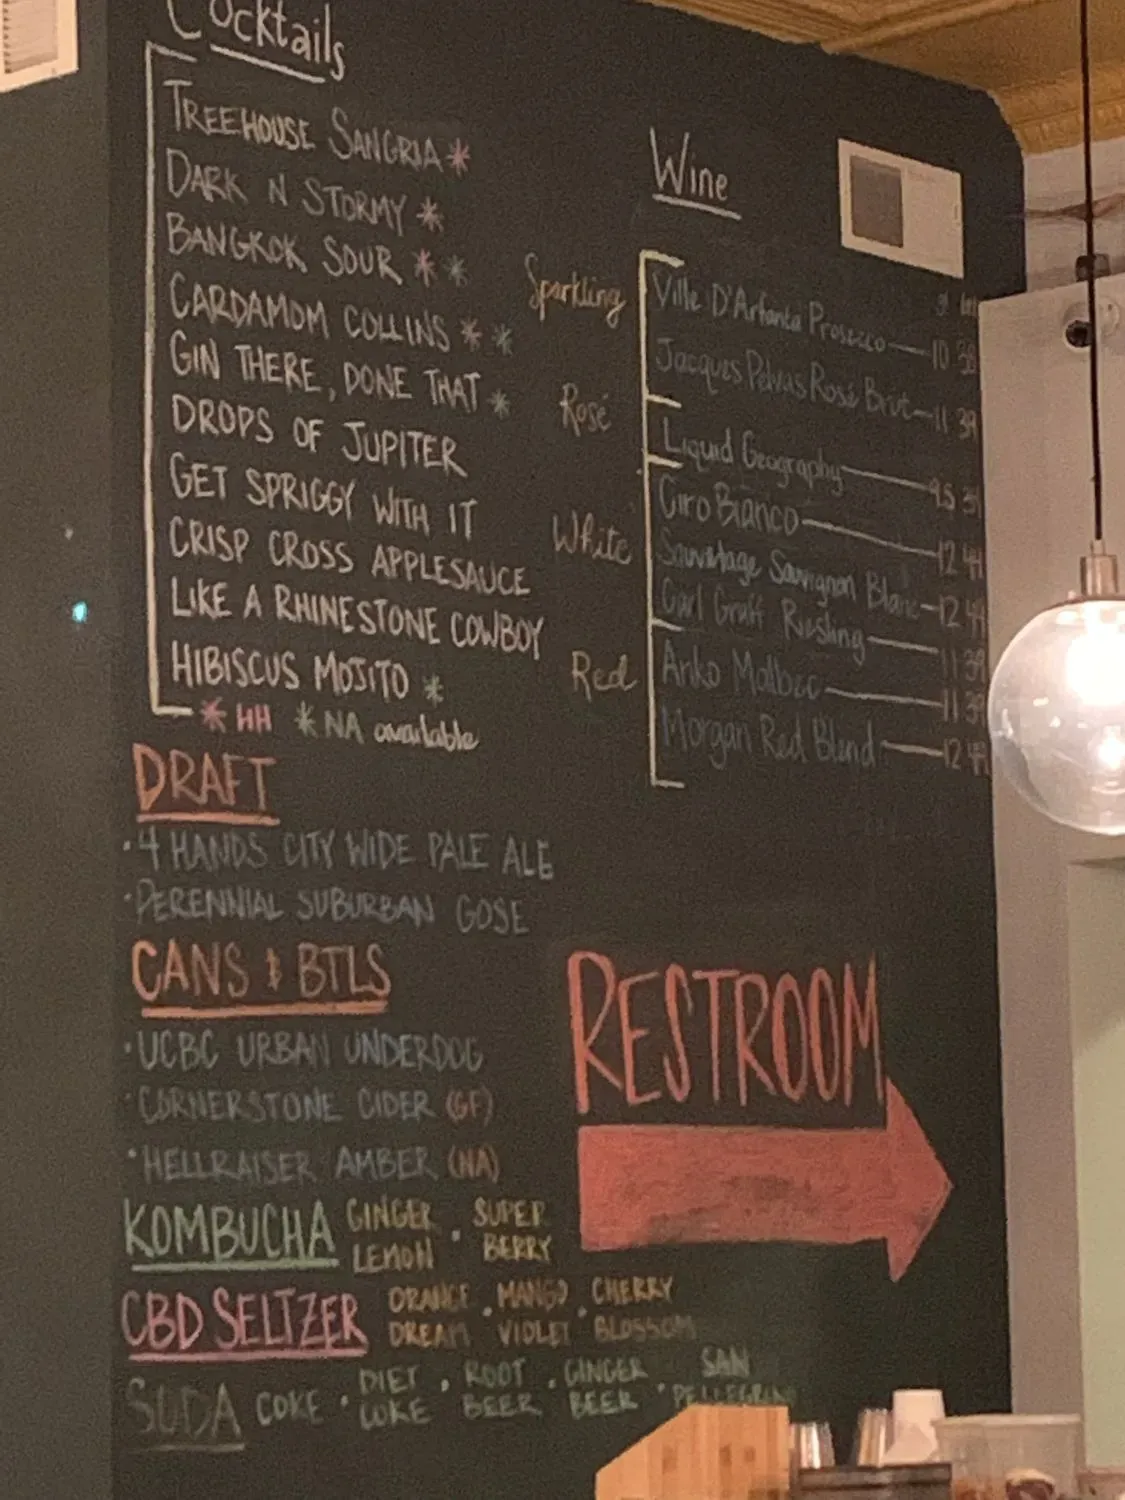 Cocktails
TREEHOUSE SANGRIA *
DARK N STORMY *
BANGKOK SOUR * *
CARDAMOM COLLINS * *
GIN THERE, DONE THAT *
DROPS OF JUPITER
GET SPRIGGY WITH IT
CRISP CROSS APPLESAUCE
LIKE A RHINESTONE COWBOY
HIBISCUS MOJITO *
* HH * NA available
Wine
Sparkling
Ville D'Arfanta Prosecco — 10 38
Jacques Pelvas Rosé Brut — 11 39
Rosé
Liquid Geography — 9.5
White
Ciro Bianco — 12 44
Sauvetage Sauvignon Blanc — 12 44
Carl Graff Riesling — 11 39
Red
Anko Malbec — 11 39
Morgan Red Blend — 12 44
DRAFT
· 4 HANDS CITY WIDE PALE ALE
· PERENNIAL SUBURBAN GOSE
CANS & BTLS
· UCBC URBAN UNDERDOG
· CORNERSTONE CIDER (GF)
· HELLRAISER AMBER (NA)
KOMBUCHA GINGER LEMON · SUPER BERRY
CBD SELTZER ORANGE DREAM · MANGO VIOLET · CHERRY BLOSSOM
SODA COKE · DIET COKE · ROOT BEER · GINGER BEER · SAN PELLEGRINO
RESTROOM